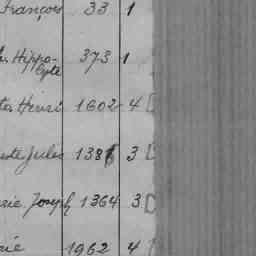 François 33 1
Hippo-
lyte 373 1
Henri 1602 4
Jules 138 3
Joseph 1364 3
1962 4